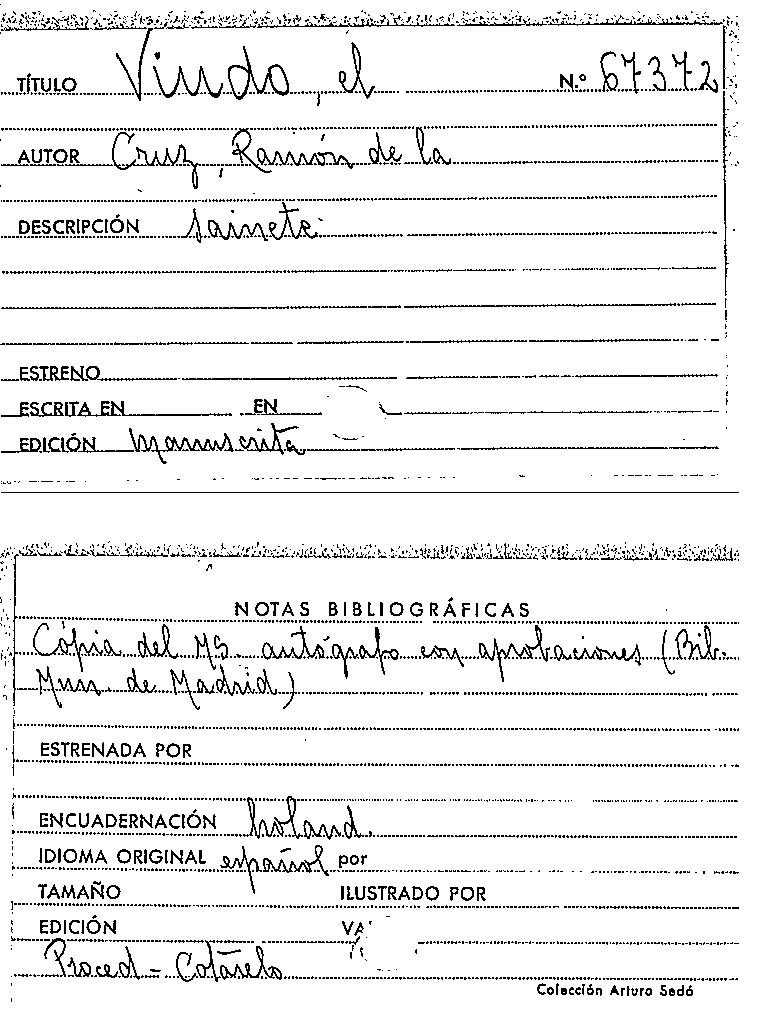 TÍTULO Viudo, el N.º 67372
AUTOR Cruz, Ramón de la
DESCRIPCIÓN Sainete.
ESTRENO
ESCRITA EN EN
EDICIÓN Manuscrita
NOTAS BIBLIOGRÁFICAS
Cópia del MS. autógrafo con aprobaciones (Bib.
Mun. de Madrid)
ESTRENADA POR
ENCUADERNACIÓN holand.
IDIOMA ORIGINAL español por
TAMAÑO ILUSTRADO POR
EDICIÓN
Proced - Cotarelo
Colección Arturo Sedó